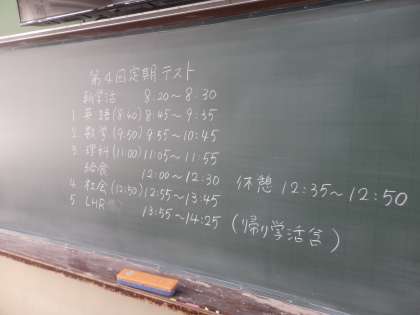 第4回定期テスト
朝学活 8:20～8:30
1. 英語(8:40) 8:45～9:35
2. 数学(9:50) 9:55～10:45
3. 理科(11:00) 11:05～11:55
給食 12:00～12:30 休憩 12:35～12:50
4. 社会(12:50) 12:55～13:45
5. LHR 13:55～14:25 (帰り学活含)